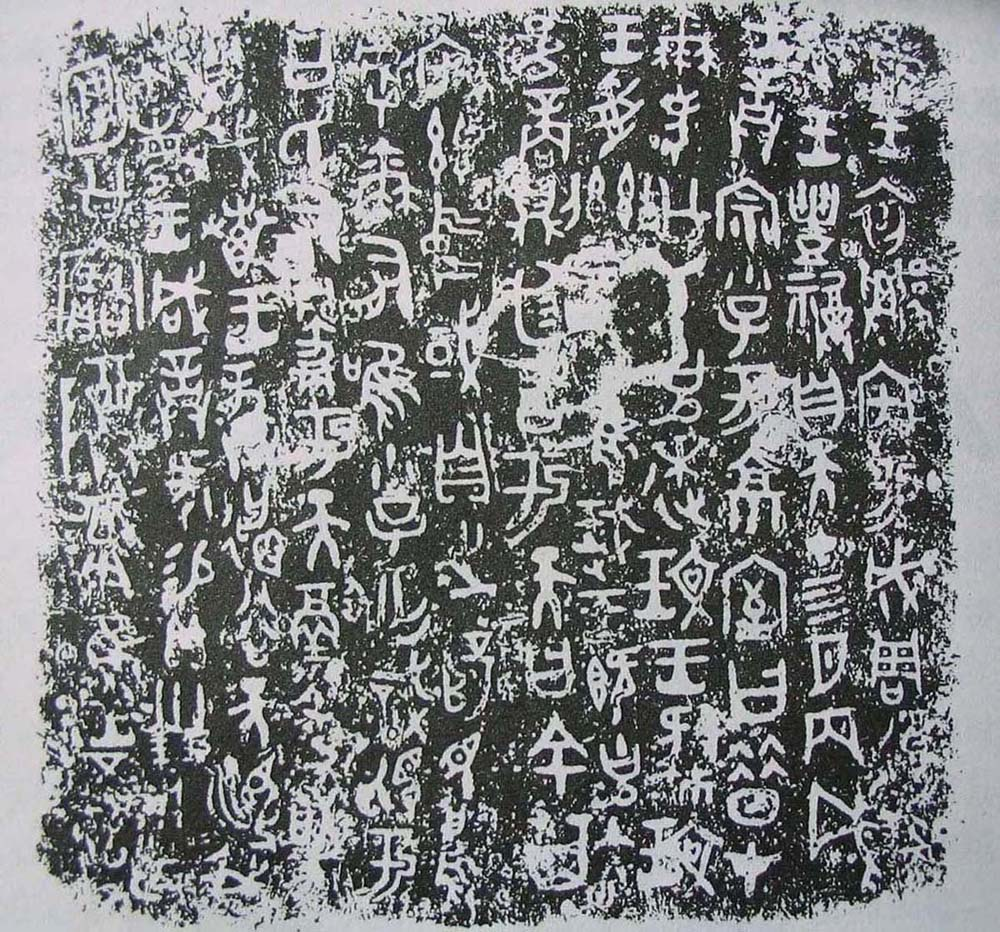 隹王初遷宅于成周復爯
珷王豊祼自天才四月丙戌
王誥宗小子于京室曰昔才
爾考公氏克逨玟王肆玟
王受茲大令隹珷王既克大
邑商則廷告于天曰余其
宅茲中或自之乂民烏
虖爾有唯小子亡識視于
公氏有爵于天徹令敬
享哉叀王龏德谷天順我
不敏王咸誥𣄰易貝卅朋用乍
公寶尊彝隹王五祀